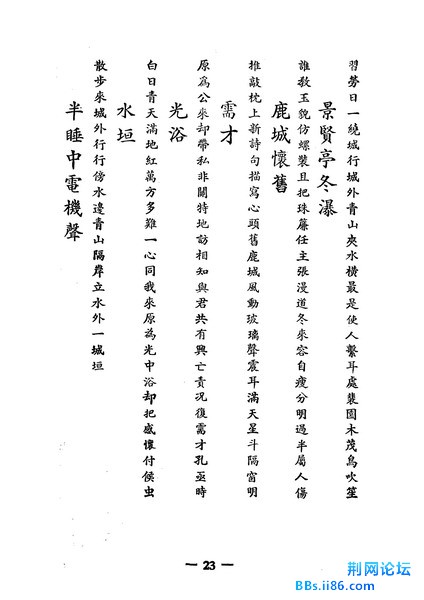 習勞日一繞城行城外青山夾水橫最是使人繫斗處襲園木茂鳥吹笙
景賢亭冬瀑
誰教玉貌仿螺裝且把珠簾任主張漫道冬來容自瘦分明過半屬人傷
鹿城懷舊
推敲枕上新詩句描寫心頭舊鹿城風動玻璃聲震耳滿天星斗隔窗明
需才
原為公來却帶私非關特地訪相知與君共有興亡責況復需才孔亟時
光浴
白日青天滿地紅萬方多難一心同我來原為光中浴却把感懷付侯虫
水垣
散步來城外行行傍水邊青山隔岸立水外一城垣
半睡中電機聲
— 23 —
荆网论坛
BBs.ii86.com